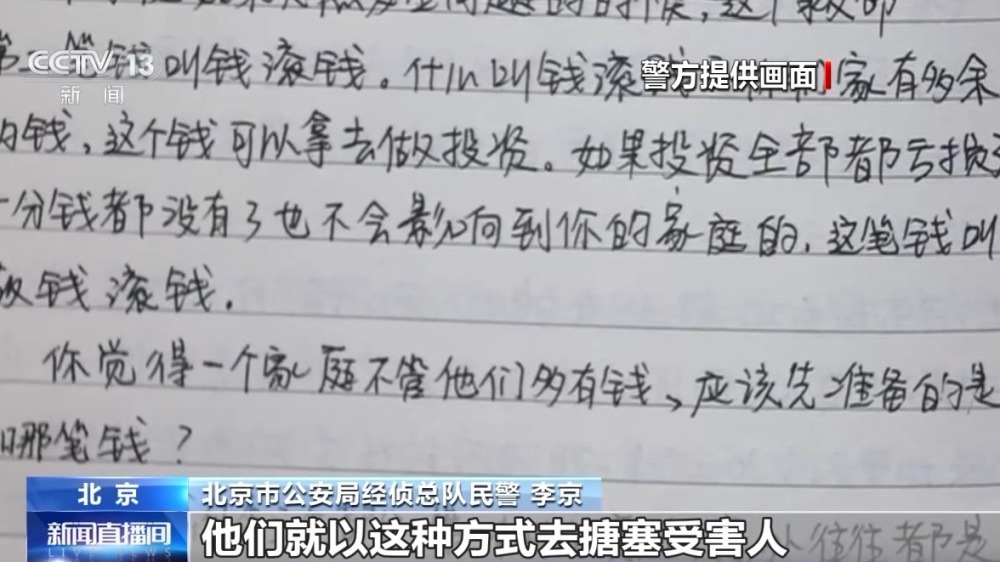 CCTV 13
新闻
警方提供画面
笔钱叫钱滚钱。什么叫钱滚 家有多余
的钱,这个钱可以拿去做投资。如果投资全部都亏损
一分钱都没有了也不会影向到你的家庭的,这笔钱叫
做钱滚钱.
你觉得一个家庭不管他们多有钱、应该先准备的是
哪笔钱?
往往都是
北京
北京市公安局经侦总队民警 李京
新闻直播间
LIVE NEWS
他们就以这种方式去搪塞受害人